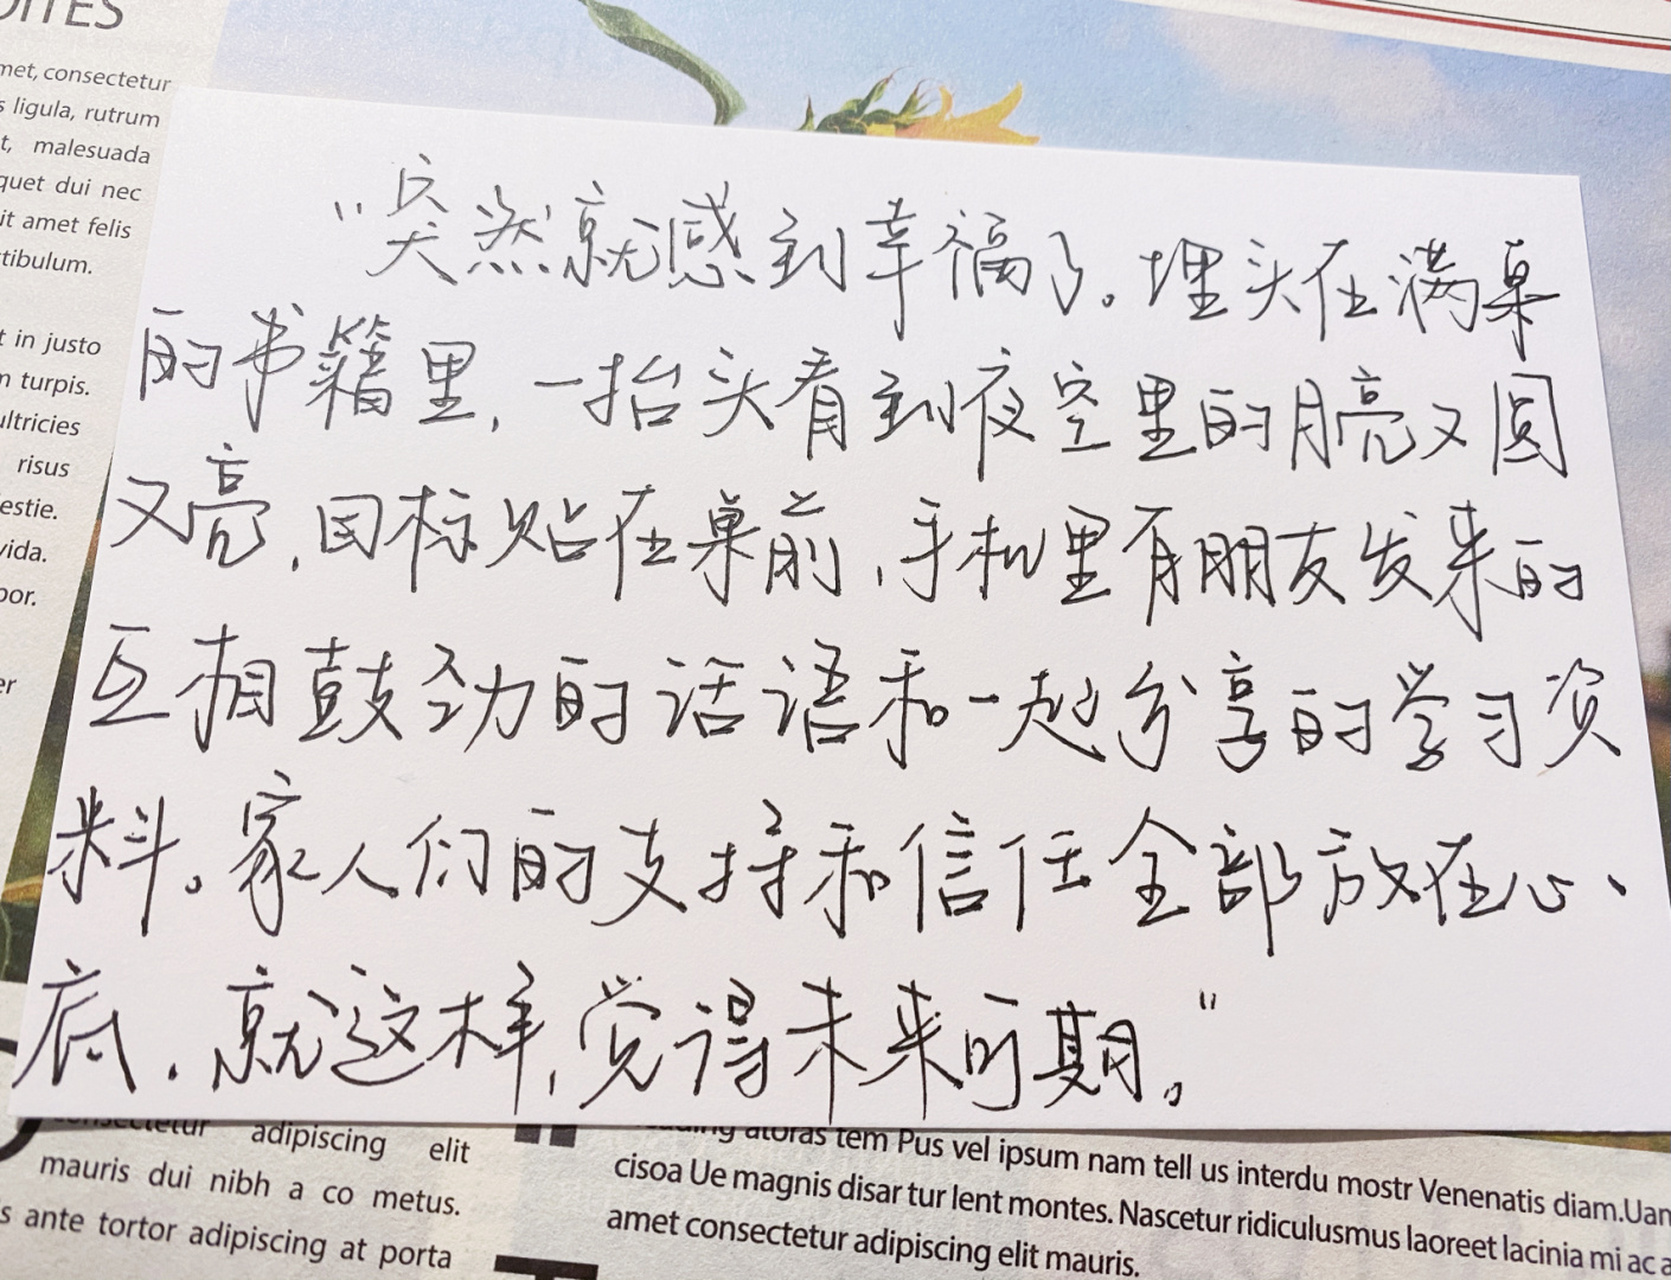 DITES
met, consectetur
s ligula, rutrum
t, malesuada
quet dui nec
it amet felis
tibulum.
t in justo
n turpis.
ultricies
risus
estie.
vida.
por.
er
“突然就感到幸福了。埋头在满桌
的书籍里，一抬头看到夜空里的月亮又圆
又亮，目标贴在桌前，手机里有朋友发来的
互相鼓劲的话语和一起分享的学习资
料。家人们的支持和信任全部放在心
底，就这样，觉得未来可期。”
consectetur adipiscing elit
mauris dui nibh a co metus.
s ante tortor adipiscing at porta
atoras tem Pus vel ipsum nam tell us interdu mostr Venenatis diam.Uam
cisoa Ue magnis disar tur lent montes. Nascetur ridiculusmus laoreet lacinia mi ac a
amet consectetur adipiscing elit mauris.